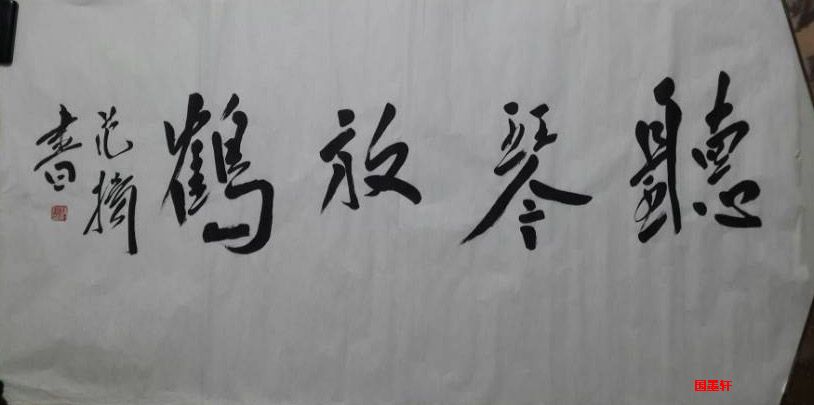 聽琴放鶴
范擣
書
国墨轩